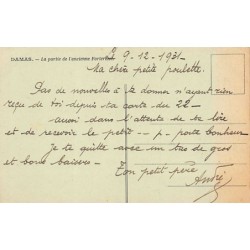 DAMAS. — La partie de l'ancienne
Le 9-12-1931
Ma chère petite poulette.
Pas de nouvelles à te donner n'ayant rien
reçu de toi depuis ta carte du 22 —
aussi dans l'attente de te lire
et de recevoir le petit — p — porte bonheur
Je te quitte avec un tas de gros
et bons baisers —
Ton petit père
André